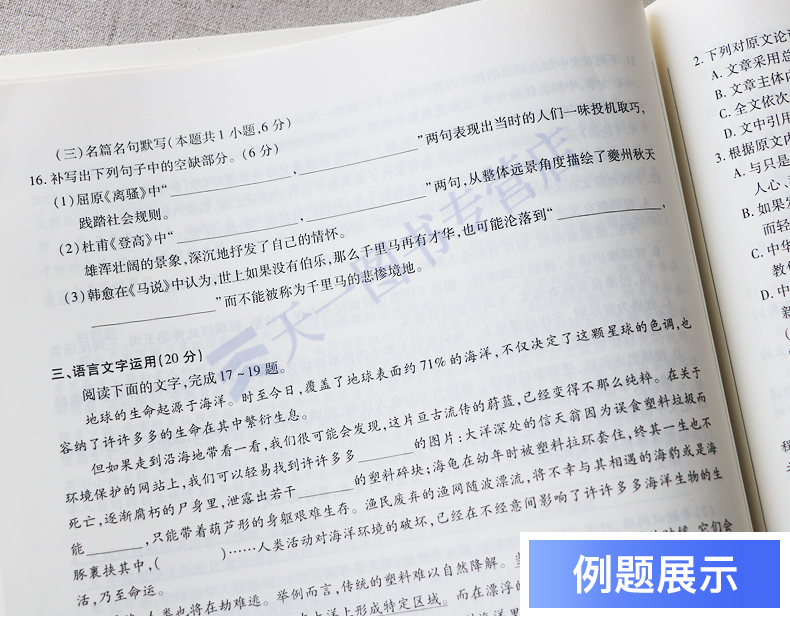 (三)名篇名句默写(本题共1小题,6分)
16.补写出下列句子中的空缺部分。(6分)
(1)屈原《离骚》中“________,________”两句表现出当时的人们一味投机取巧,
践踏社会规则。
(2)杜甫《登高》中“________,________”两句,从整体远景角度描绘了夔州秋天
雄浑壮阔的景象,深沉地抒发了自己的情怀。
(3)韩愈在《马说》中认为,世上如果没有伯乐,那么千里马再有才华,也可能沦落到“________,
________”而不能被称为千里马的悲惨境地。
三、语言文字运用(20分)
阅读下面的文字,完成17~19题。
地球的生命起源于海洋。时至今日,覆盖了地球表面约71%的海洋,不仅决定了这颗星球的色调,也
容纳了许许多多的生命在其中繁衍生息。
但如果走到沿海地带看一看,我们很可能会发现,这片亘古流传的蔚蓝,已经变得不那么纯粹。在关于
环境保护的网站上,我们可以轻易找到许许多多________的图片:大洋深处的信天翁因为误食塑料垃圾而
死亡,逐渐腐朽的尸身里,泄露出若干________的塑料碎块;海龟在幼年时被塑料拉环套住,终其一生也不
能________,只能带着葫芦形的身躯艰难生存。渔民废弃的渔网随波漂流,将不幸与其相遇的海豹或是海
豚裹挟其中,(    )……人类活动对海洋环境的破坏,已经在不经意间影响了许许多多海洋生物的生
活,乃至命运。
人类也将在劫难逃。举例而言,传统的塑料难以自然降解。
时候,它们会
上形成特定区域。而在漂浮的
2.下列对原文论
A.文章采用总
B.文章主体
C.全文依次
D.文中引用
3.根据原文内
A.与只是
人心
B.如果
而轻
C.中
教
D.中
天一图书专营店
例题展示